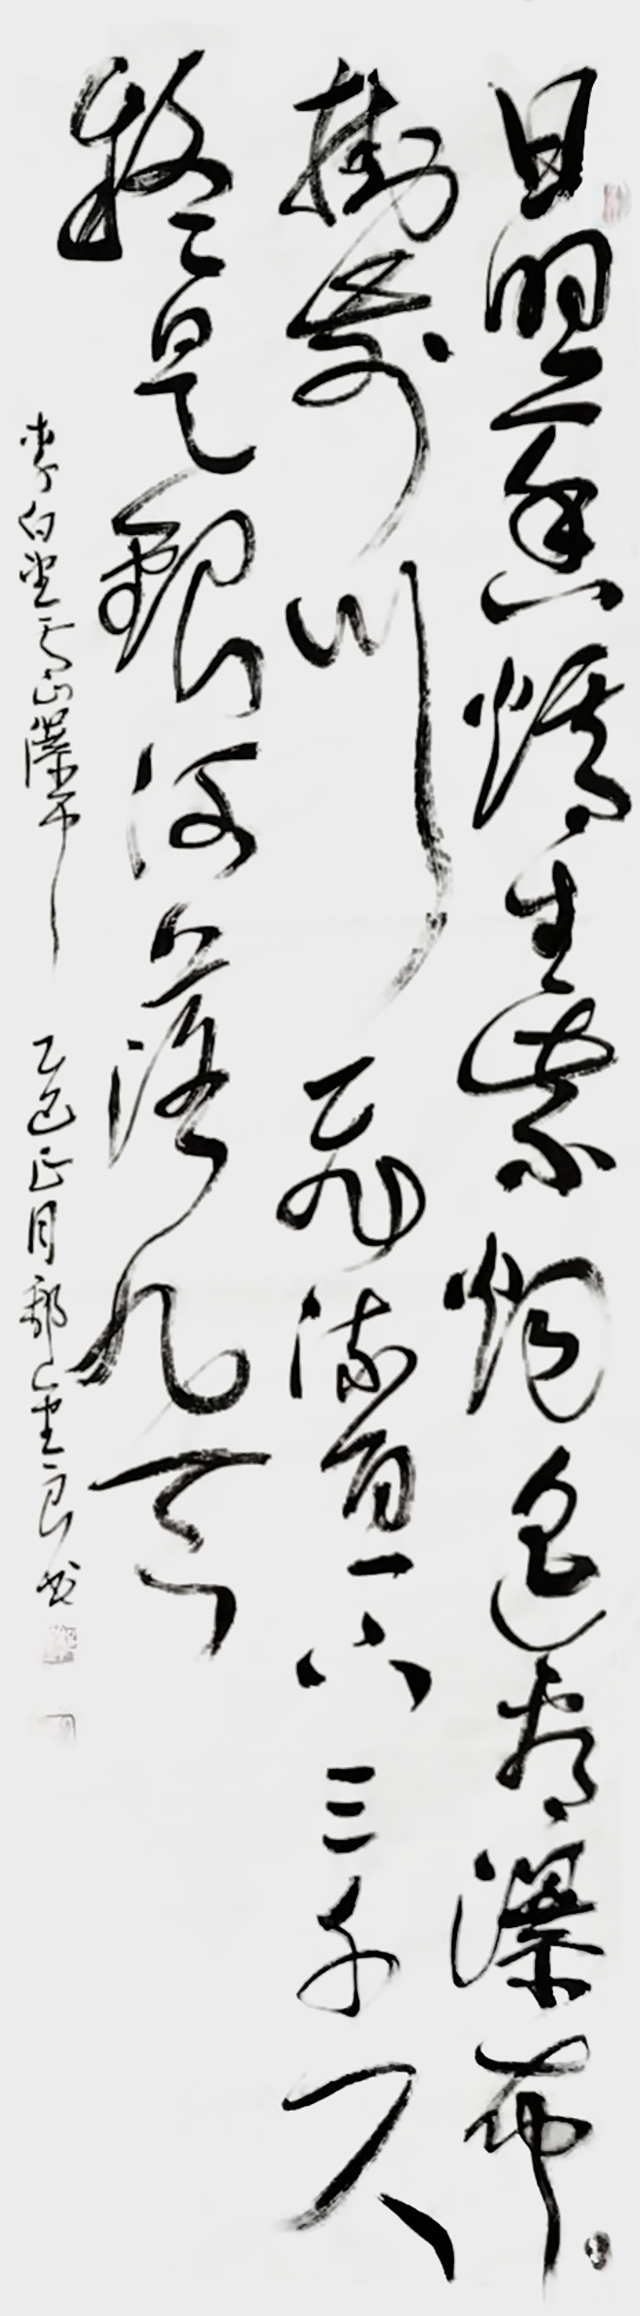 日照香爐生紫烟遥看瀑布
掛前川飛流直下三千尺
疑是銀河落九天
李白望庐山瀑布 乙巳正月 书